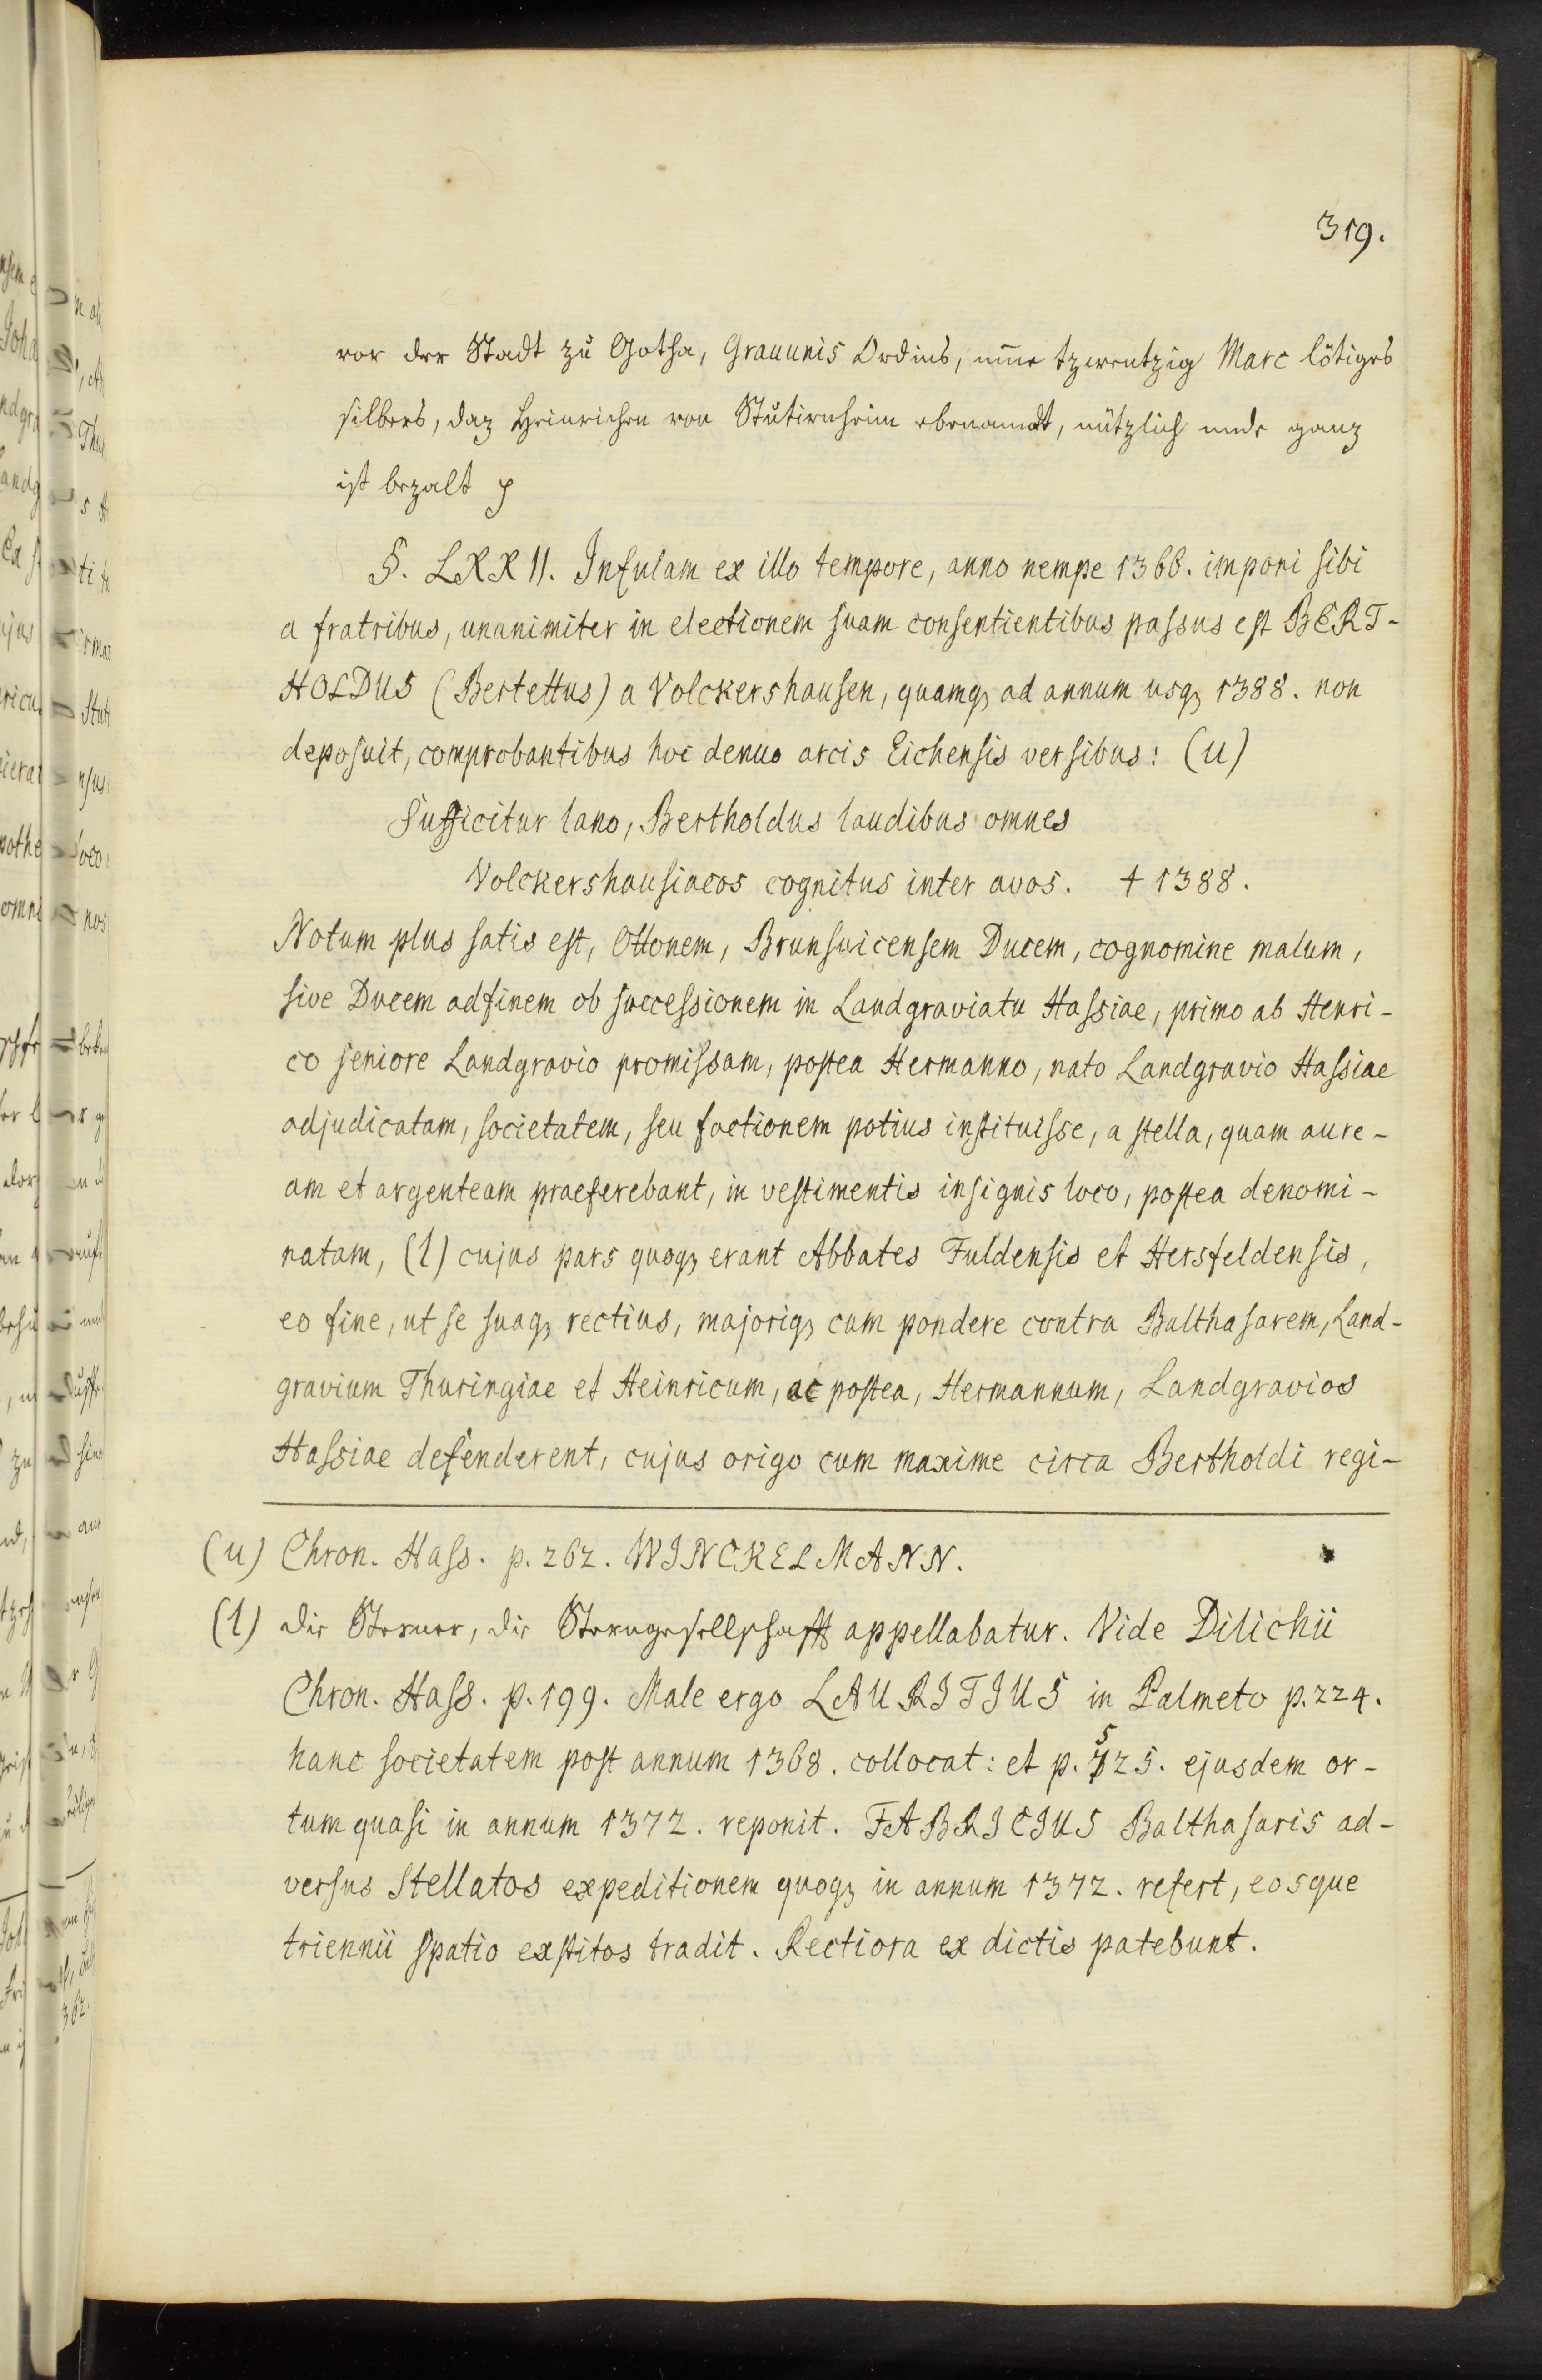 319.
vor der Stadt zu Gotha, Grauunis Ordins, umme tzwentzig Marc lötiges
silbers, daz Heinrichen von Stutirnheim ebenamdt, nützlich unde ganz
ist bezalt
§. LXXII. Infulam ex illo tempore, anno nempe 1366. imponi sibi
a fratribus, unanimiter in electionem suam consentientibus passus est BERT-
HOLDUS (Bertettus) a Volckershausen, quamq, ad annum usq, 1388. non
deposuit, comprobantibus hoc denuo arcis Eichensis versibus: (u)
Sufficitur lano, Bertholdus laudibus omnes
Volckershausiacos cognitus inter avos. † 1388.
Notum plus satis est, Ottonem, Brunsvicensem Ducem, cognomine malum,
sive Ducem adfinem ob successionem in Landgraviatu Hassiae, primo ab Henri-
co seniore Landgravio promissam, postea Hermanno, nato Landgravio Hassiae
adjudicatam, societatem, seu factionem potius instituisse, a stella, quam aure-
am et argenteam praeferebant, in vestimentis insignis loco, postea denomi-
natam, (1) cujus pars quoq, erant Abbates Fuldensis et Hersfeldensis,
eo fine, ut se suaq, rectius, majoriq, cum pondere contra Balthasarem, Land-
gravium Thuringiae et Heinricum, ac postea, Hermannum, Landgravios
Hassiae defenderent, cujus origo cum maxime circa Bertholdi regi-
(u) Chron. Hass. p. 262. WINCKELMANN.
(1) die Sterner, die Sterngesellschafft appellabatur. Vide Dilichii
Chron. Hass. p. 199. Male ergo LAURITIUS in Palmeto p. 224.
hanc societatem post annum 1368. collocat: et p. 525. ejusdem or-
tum quasi in annum 1372. reponit. FABRICIUS Balthasaris ad-
versus Stellatos expeditionem quoq, in annum 1372. refert, eosque
triennii spatio exstitos tradit. Rectiora ex dictis patebunt.